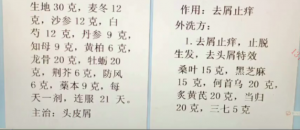 生地 30 克，麦冬 12
克，沙参 12 克，白
芍 12 克，丹参 9 克，
知母 9 克，黄柏 6 克，
龙骨 20 克，牡蛎 20
克，荆芥 6 克，防风
6 克，藁本 9 克，每
天一剂，连服 21 天。
主治：头皮屑
作用：去屑止痒
外洗方：
1.去屑止痒，止脱
生发，去头屑特效
桑叶 15 克，黑芝麻
15 克，何首乌 20 克，
炙黄芪 20 克，当归
20 克，三七 5 克